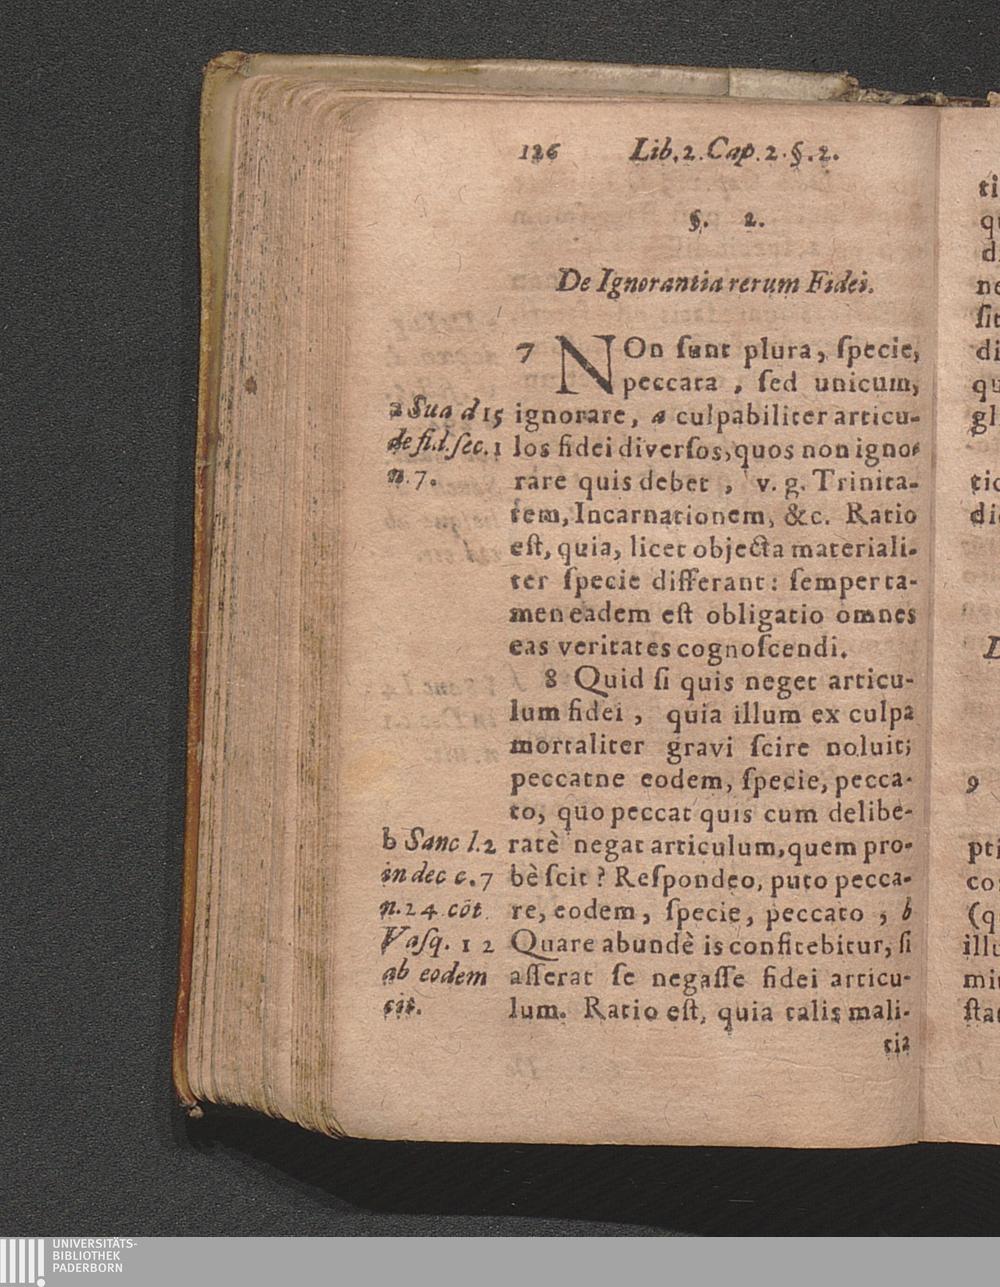 126 Lib. 2. Cap. 2. §. 2.
§. 2.
De Ignorantia rerum Fidei.
7 NOn sunt plura, specie,
peccata, sed unicum,
ignorare, a culpabiliter articu-
los fidei diversos, quos non igno-
rare quis debet, v. g. Trinita-
tem, Incarnationem, &c. Ratio
est, quia, licet objecta materiali-
ter specie differant: semper ta-
men eadem est obligatio omnes
eas veritates cognoscendi.
8 Quid si quis neget articu-
lum fidei, quia illum ex culpa
mortaliter gravi scire noluit;
peccatne eodem, specie, pecca-
to, quo peccat quis cum delibe-
ratè negat articulum, quem pro-
bè scit? Respondeo, puto pecca-
re, eodem, specie, peccato; b
Quare abundè is confitebitur, si
asserat se negasse fidei articu-
lum. Ratio est, quia talis mali-
tia
a Sua d 15
de fi.l. sec. 1
n. 7.
b Sanc l. 2
in dec c. 7
n. 24 cōt
Vasq. 12
ab eodem
cit.
ti
qu
ne
sit
di
qu
gl
tic
9
pti
co
(q
illu
mi
sta
UNIVERSITÄTS-
BIBLIOTHEK
PADERBORN